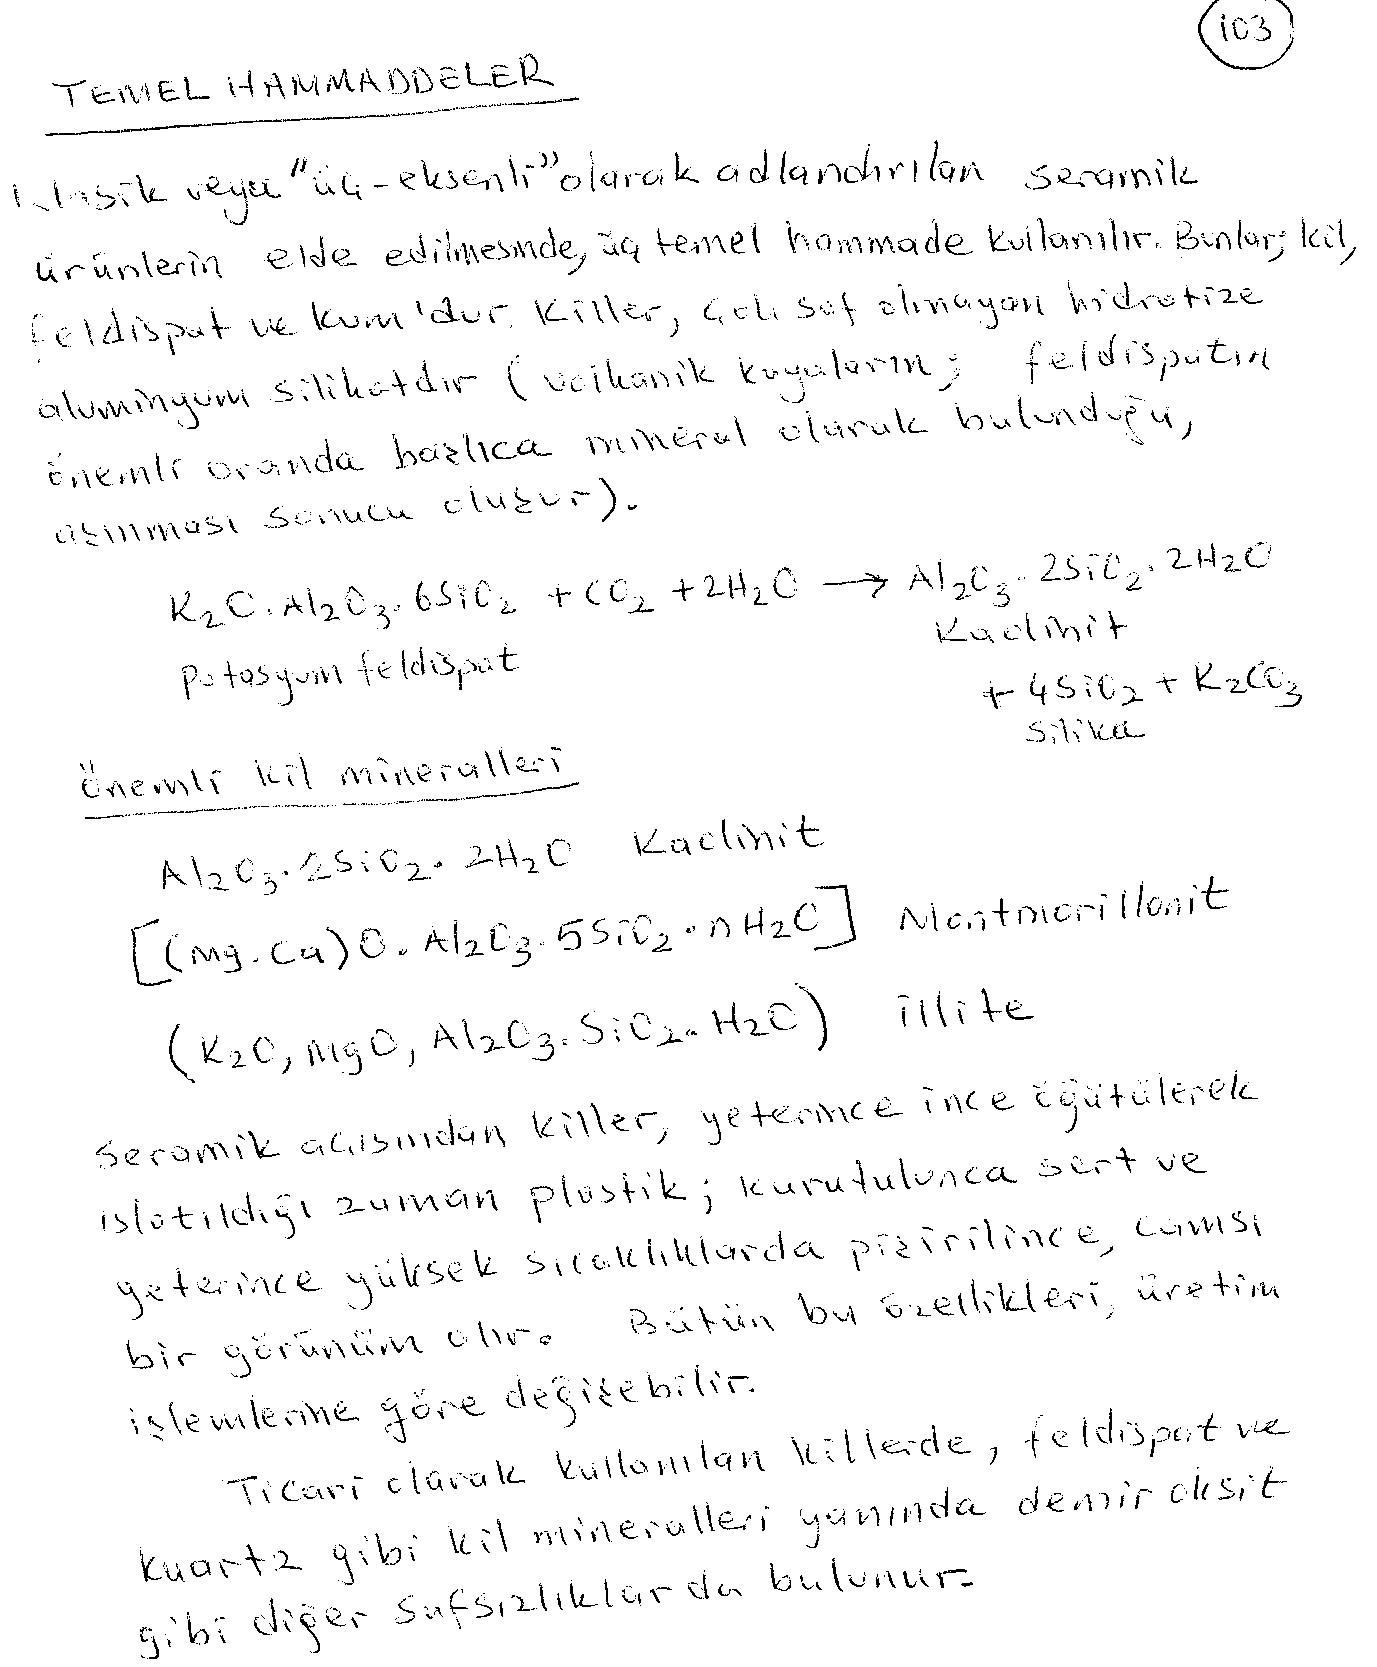 103
TEMEL HAMMADDELER
Klasik veya "üç-eksenli" olarak adlandırılan seramik
ürünlerin elde edilmesinde, üç temel hammade kullanılır. Bunlar; kil,
feldispat ve kum'dur. Killer, çok saf olmayan hidratize
aluminyum silikatdır (volkanik kayaların; feldispatın
önemli oranda başlıca mineral olarak bulunduğu,
aşınması sonucu oluşur).
K₂O.Al₂O₃.6SiO₂ + CO₂ + 2H₂O → Al₂O₃.2SiO₂.2H₂O
Potasyum feldispat Kaolinit
+ 4SiO₂ + K₂CO₃
Silika
önemli kil mineralleri
Al₂O₃.2SiO₂.2H₂O Kaolinit
[(Mg.Ca)O.Al₂O₃.5SiO₂.nH₂O] Montmorillonit
(K₂O, MgO, Al₂O₃.SiO₂.H₂O) illite
Seramik açısından killer, yeterince ince öğütülerek
ıslatıldığı zaman plastik; kurutulunca sert ve
yeterince yüksek sıcaklıklarda pişirilince, camsı
bir görünüm alır. Bütün bu özellikleri, üretim
işlemlerine göre değişebilir.
Ticari olarak kullanılan killerde, feldispat ve
kuartz gibi kil mineralleri yanında demir oksit
gibi diğer safsızlıklar da bulunur.